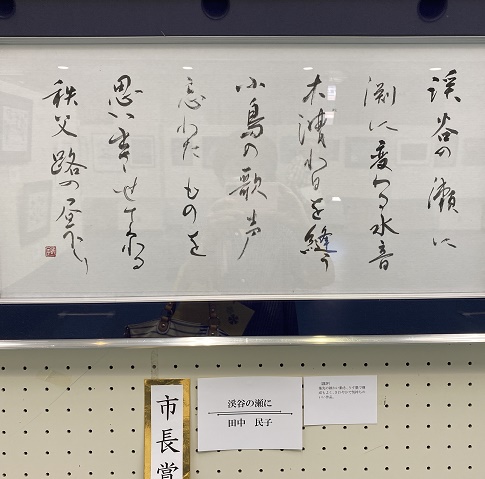 渓谷の瀬に
渕に変わる水音
木漬れ日を縫う
小鳥の歌声
忘れたものを
思い出させてくれる
秩父路の
市長賞
渓谷の瀬に
田中 民子